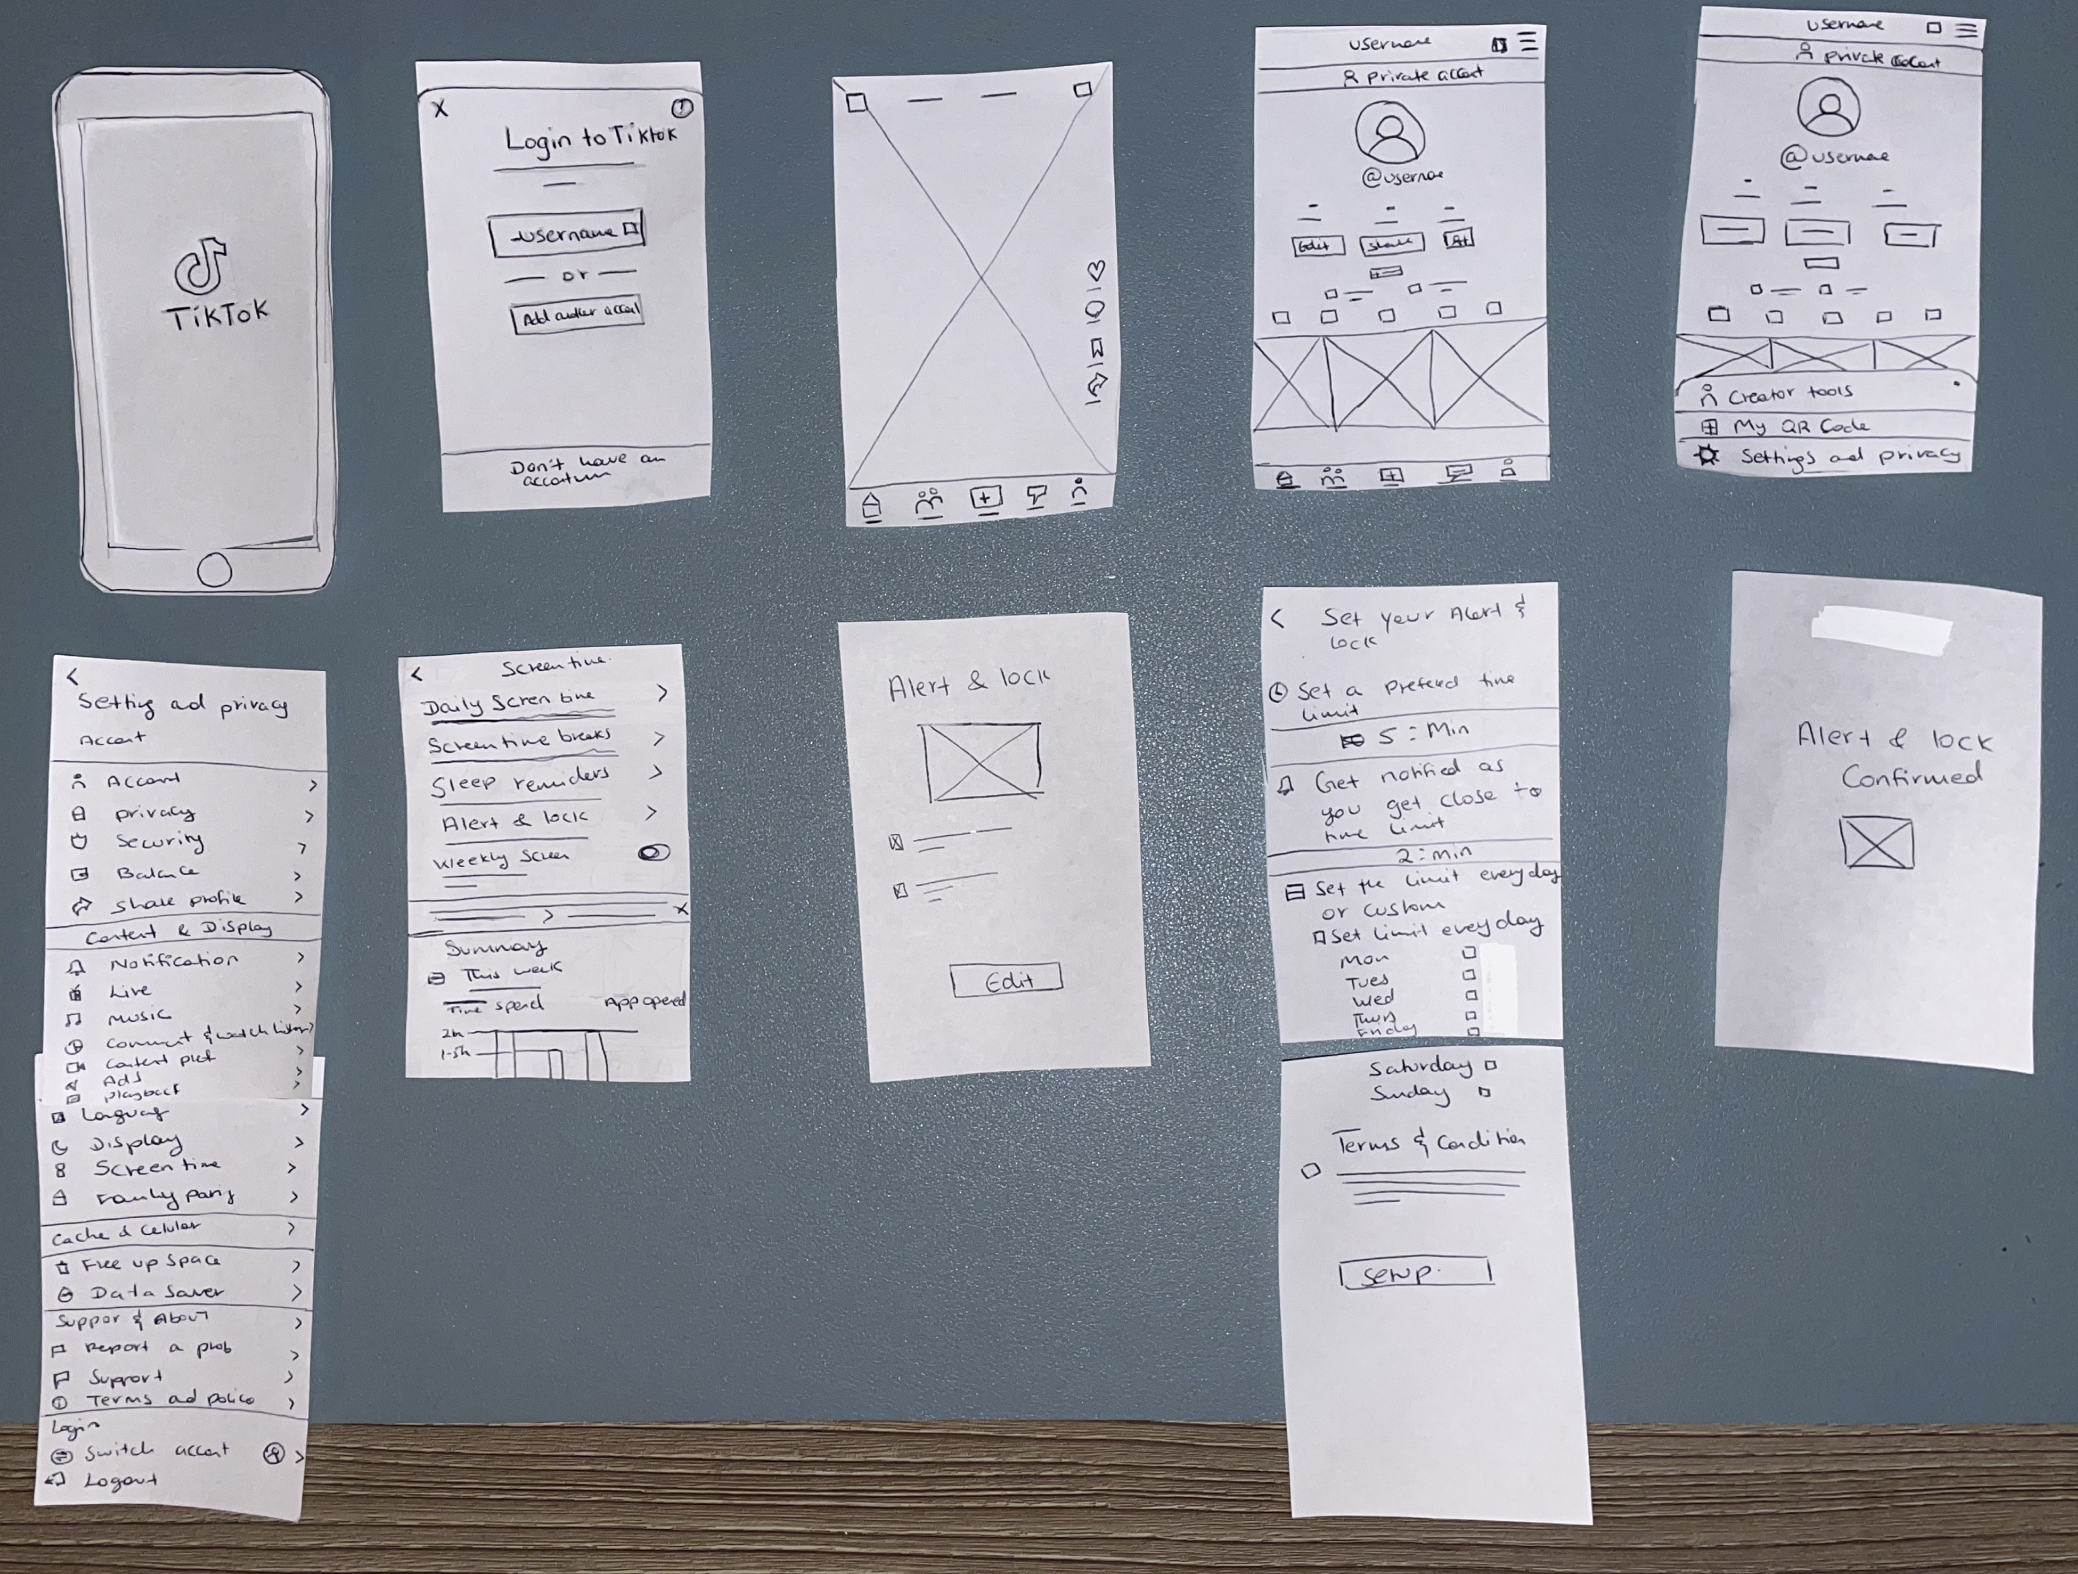 TikTok
X
Login to Tiktok
username
or
Add
Don't have an
username
private
@
Edit
Share
username
private
@username
Creator tools
My QR Code
Settings and privacy
<
Setting and privacy
Account
Account >
privacy >
Security >
Balance >
Share profile >
Content & Display
Notification >
Live >
Music >
Comment & watch
Content >
Ads >
playback >
>
Display >
Screen time >
Family >
Cache & >
Free up space >
Data Saver >
& About >
Report a prob >
Support >
Terms and >
Login
Switch >
Logout
<
Screen time
Daily Screen time >
Screen time breaks >
Sleep >
Alert & lock >
Weekly Screen
> X
Summary
This week
Time spend App opened
2h
1.5h
Alert & lock
Edit
<
Set your Alert &
lock
Set a time
limit
5 : Min
Get notified as
you get close to
time limit
2 : min
Set the limit everyday
or custom
Set limit everyday
Mon
Tues
Wed
Thurs
Friday
Saturday
Sunday
Terms & Condition
setup.
Alert & lock
Confirmed